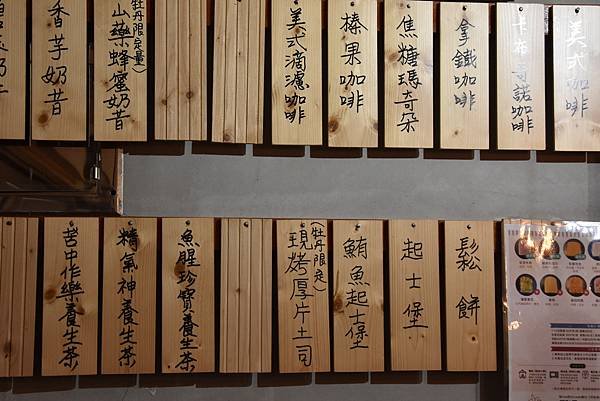 美式咖啡
卡布奇諾咖啡
拿鐵咖啡
焦糖瑪奇朵
榛果咖啡
美式滴濾咖啡
山藥蜂蜜奶昔
(牡丹限定量)
香芋奶昔
鬆餅
起士堡
鮪魚起士堡
現烤厚片土司
(牡丹限定)
魚腥珍寶養生茶
精氣神養生茶
苦中作樂養生茶